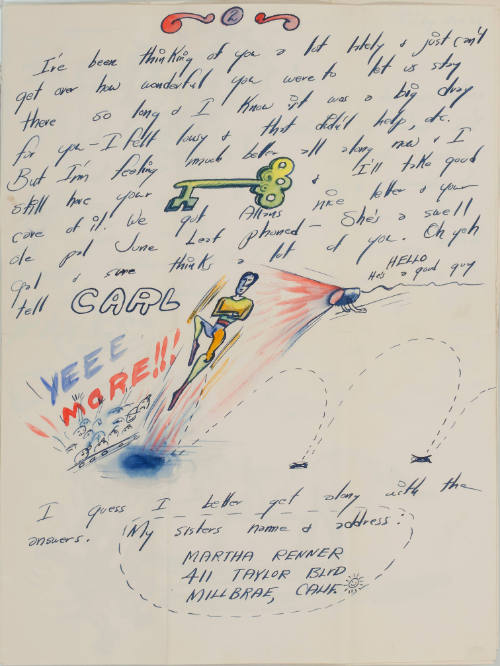 2
I've been thinking of you a lot lately & just can't
get over how wonderful you were to let us stay
there so long & I know it was a big drag
for you - I felt lousy & that didn't help, etc.
But I'm feeling much better all along now & I
still have your & I'll take good
care of it. We got Allans nice letter & your
ole pal June Leaf phoned - She's a swell
gal & sure thinks a lot of you. Oh yeh
tell CARL HELLO
He's a good guy
YEEE
MORE!!!
I guess I better get along with the
answers. My sisters name & address:
MARTHA RENNER
411 TAYLOR BLVD
MILLBRAE, CALIF.